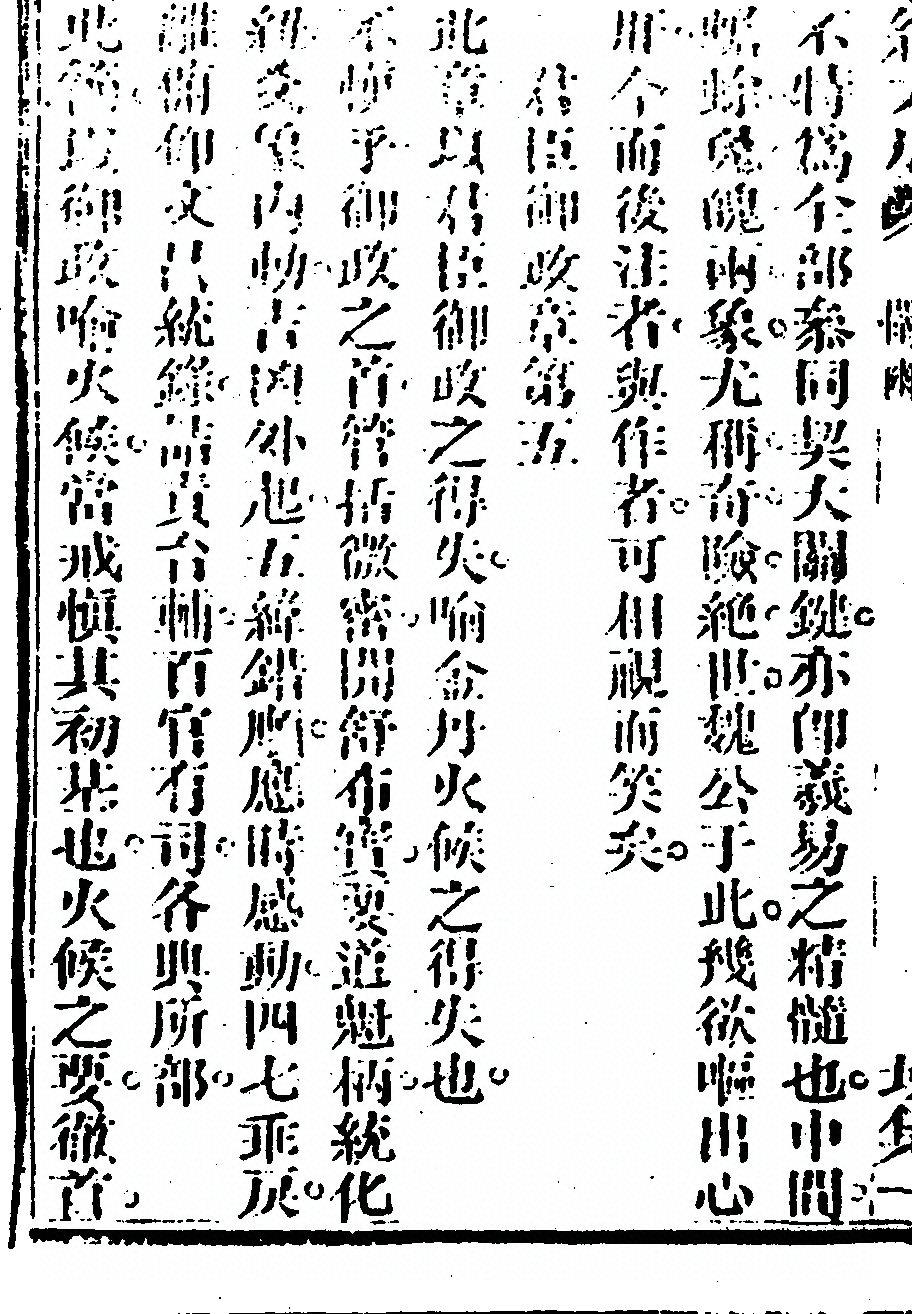 不特為全部參同契大關鍵亦卽羲易之精髓也中間
蟾蜍兔魄兩象尤稱奇險絕世魏公于此幾欲嘔出心
肝今而後注者與作者可相視而笑矣
君臣御政章第五
此章以君臣御政之得失喻金丹火候之得失也
不啻乎御政之首管括微密開舒布寶要道魁柄統化
綱紐爻象內動吉凶外起五緯錯順應時感動四七乖戾
誃離俯仰文昌統錄詰責台輔百官有司各典所部
此節以御政喻火候當戒愼其初基也火候之要徹首